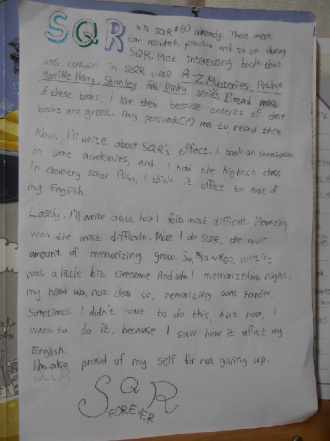 SQR
is SQR already. There were
car accidents, practice and so on during
SQR. Most interesting book that
was contain in SSQR were A-Z Mysteries, Arthur
Horrible Harry, Stanley and series. I read most
of these books. I like them because contents of these
books are great. They persuade(?) me to read them
Now, I'll write about SQR's effect. I took an examination
on some academies, and I had the highest class
in elementry school. Also, I think it effect to most of
my English
Lastly, I'll write about how I felt most difficult. Memorizing
was the most difficult. More I do SQR, the more
amount of memorizing grow. So, writing
was a little bit tiresome. And when I memorized at night,
my head was not clear so, memorizing was harder.
Sometimes I didn't want to do this, but now, I
want to do it, because I saw how it effect my
English.
I'm also proud of my self for not giving up.
SQR
FOREVER